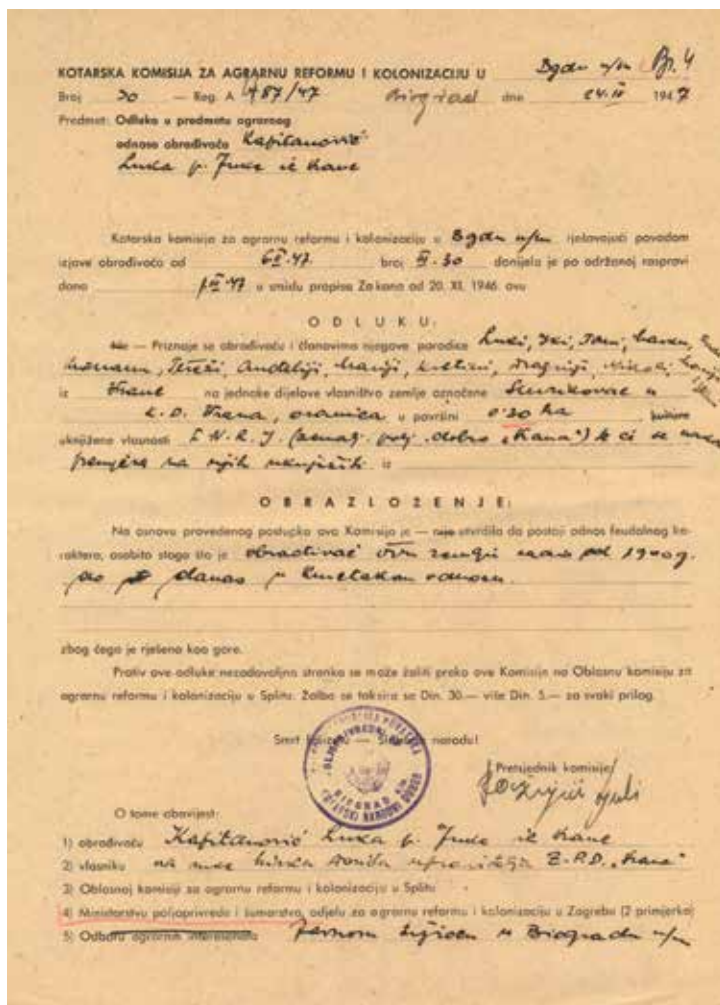 KOTARSKA KOMISIJA ZA AGRARNU REFORMU I KOLONIZACIJU U Bgdu n/m Br. 4
Broj 30 — Reg. A 787/47 Biograd dne 24. II 1947
Predmet: Odluka u predmetu agrarnog
odnosa obrađivača Kapitanović
Luka p. Jure iz Vrane
Kotarska komisija za agrarnu reformu i kolonizaciju u Bgdu n/m rješavajući povodom
izjave obrađivača od 6 II. 47. broj 30 donijela je po održanoj raspravi
dana II 47 u smislu propisa Zakona od 20. XI. 1946. ovu
ODLUKU:
Ne — Priznaje se obrađivaču i članovima njegove porodice Luki, Tomi,
Terezi, Anđeliji, Mariji, Draginji, Nikoli,
iz Vrane na jednake dijelove vlasništvo zemlje označene
k.o. Vrana, oranica u površini 0.30 ha kulture
uknjižene vlasnosti F.N.R.J. (zemalj. polj. dobro „Vrana") te će se
na njih uknjižiti iz
OBRAZLOŽENJE:
Na osnovu provedenog postupka ova Komisija je — nije utvrdila da postoji odnos feudalnog ka-
raktera, osobito stoga što je obrađivač ovu zemlju od 1900 g.
do danas u kmetskom odnosu.
zbog čega je rješeno kao gore.
Protiv ove odluke nezadovoljna stranka se može žaliti preko ove Komisije na Oblasnu komisiju za
agrarnu reformu i kolonizaciju u Splitu. Žalba se taksira sa Din. 30.— više Din. 5.— za svaki prilog.
Smrt fašizmu — Sloboda narodu!
Pretsjednik komisije:
O tome obavijest:
1) obrađivaču Kapitanović Luka p. Jure iz Vrane
2) vlasniku na ruke upravitelja Z.P.D. „Vrana"
3) Oblasnoj komisiji za agrarnu reformu i kolonizaciju u Splitu
4) Ministarstvu poljoprivrede i šumarstva, odjelu za agrarnu reformu i kolonizaciju u Zagrebu (2 primjerka)
5) Odboru agrarnih interesenata Javnom u Biogradu n/m